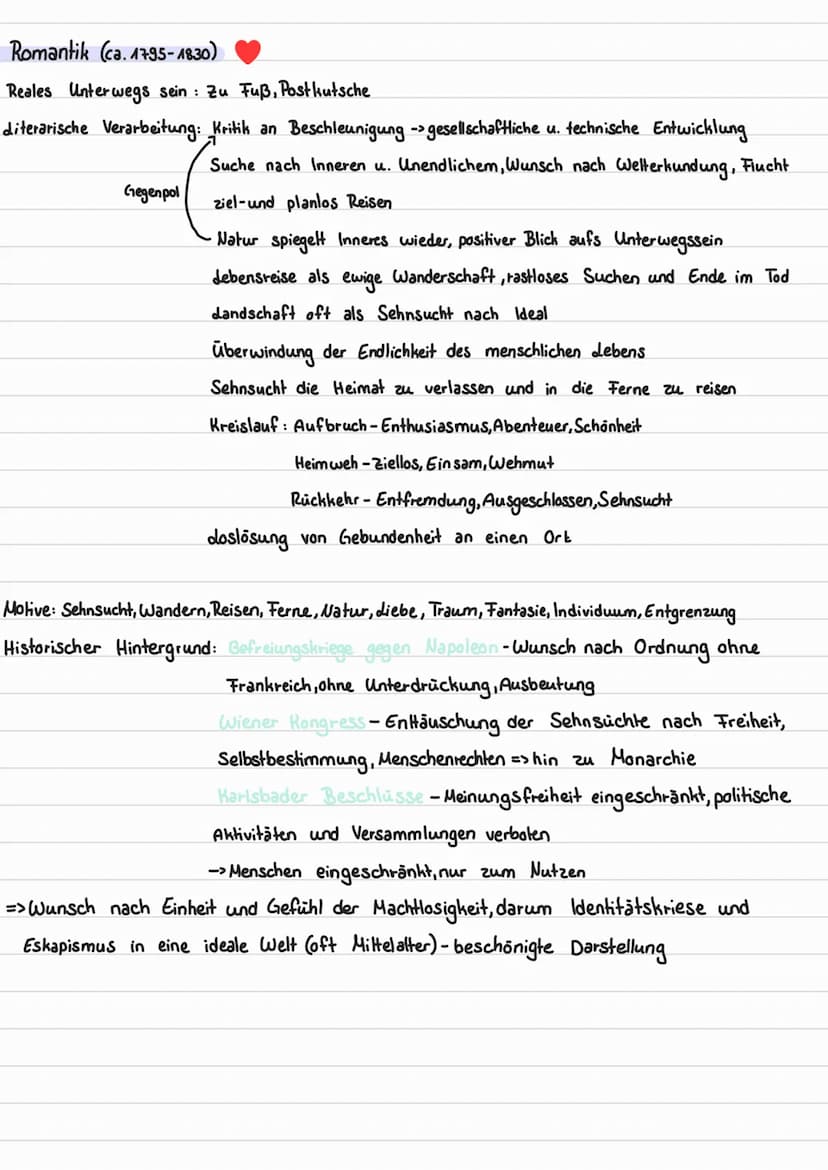 Romantik (ca. 1795-1830) ❤
Reales Unterwegs sein : zu Fuß, Postkutsche
Literarische Verarbeitung: Kritik an Beschleunigung -> gesellschaftliche u. technische Entwicklung
Suche nach Inneren u. Unendlichem, Wunsch nach Welterkundung, Flucht
Gegenpol
ziel- und planlos Reisen
Natur spiegelt Inneres wieder, positiver Blick aufs Unterwegssein
Lebensreise als ewige Wanderschaft, rastloses Suchen und Ende im Tod
Landschaft oft als Sehnsucht nach Ideal
Überwindung der Endlichkeit des menschlichen Lebens
Sehnsucht die Heimat zu verlassen und in die Ferne zu reisen
Kreislauf : Aufbruch - Enthusiasmus, Abenteuer, Schönheit
Heimweh - Ziellos, Einsam, Wehmut
Rückkehr - Entfremdung, Ausgeschlossen, Sehnsucht
Loslösung von Gebundenheit an einen Ort
Motive: Sehnsucht, Wandern, Reisen, Ferne, Natur, Liebe, Traum, Fantasie, Individuum, Entgrenzung
Historischer Hintergrund: Befreiungskriege gegen Napoleon - Wunsch nach Ordnung ohne
Frankreich, ohne Unterdrückung, Ausbeutung
Wiener Kongress - Enttäuschung der Sehnsüchte nach Freiheit,
Selbstbestimmung, Menschenrechten => hin zu Monarchie
Karlsbader Beschlüsse - Meinungsfreiheit eingeschränkt, politische
Aktivitäten und Versammlungen verboten
-> Menschen eingeschränkt, nur zum Nutzen
=> Wunsch nach Einheit und Gefühl der Machtlosigkeit, darum Identitätskriese und
Eskapismus in eine ideale Welt (oft Mittelalter) - beschönigte Darstellung